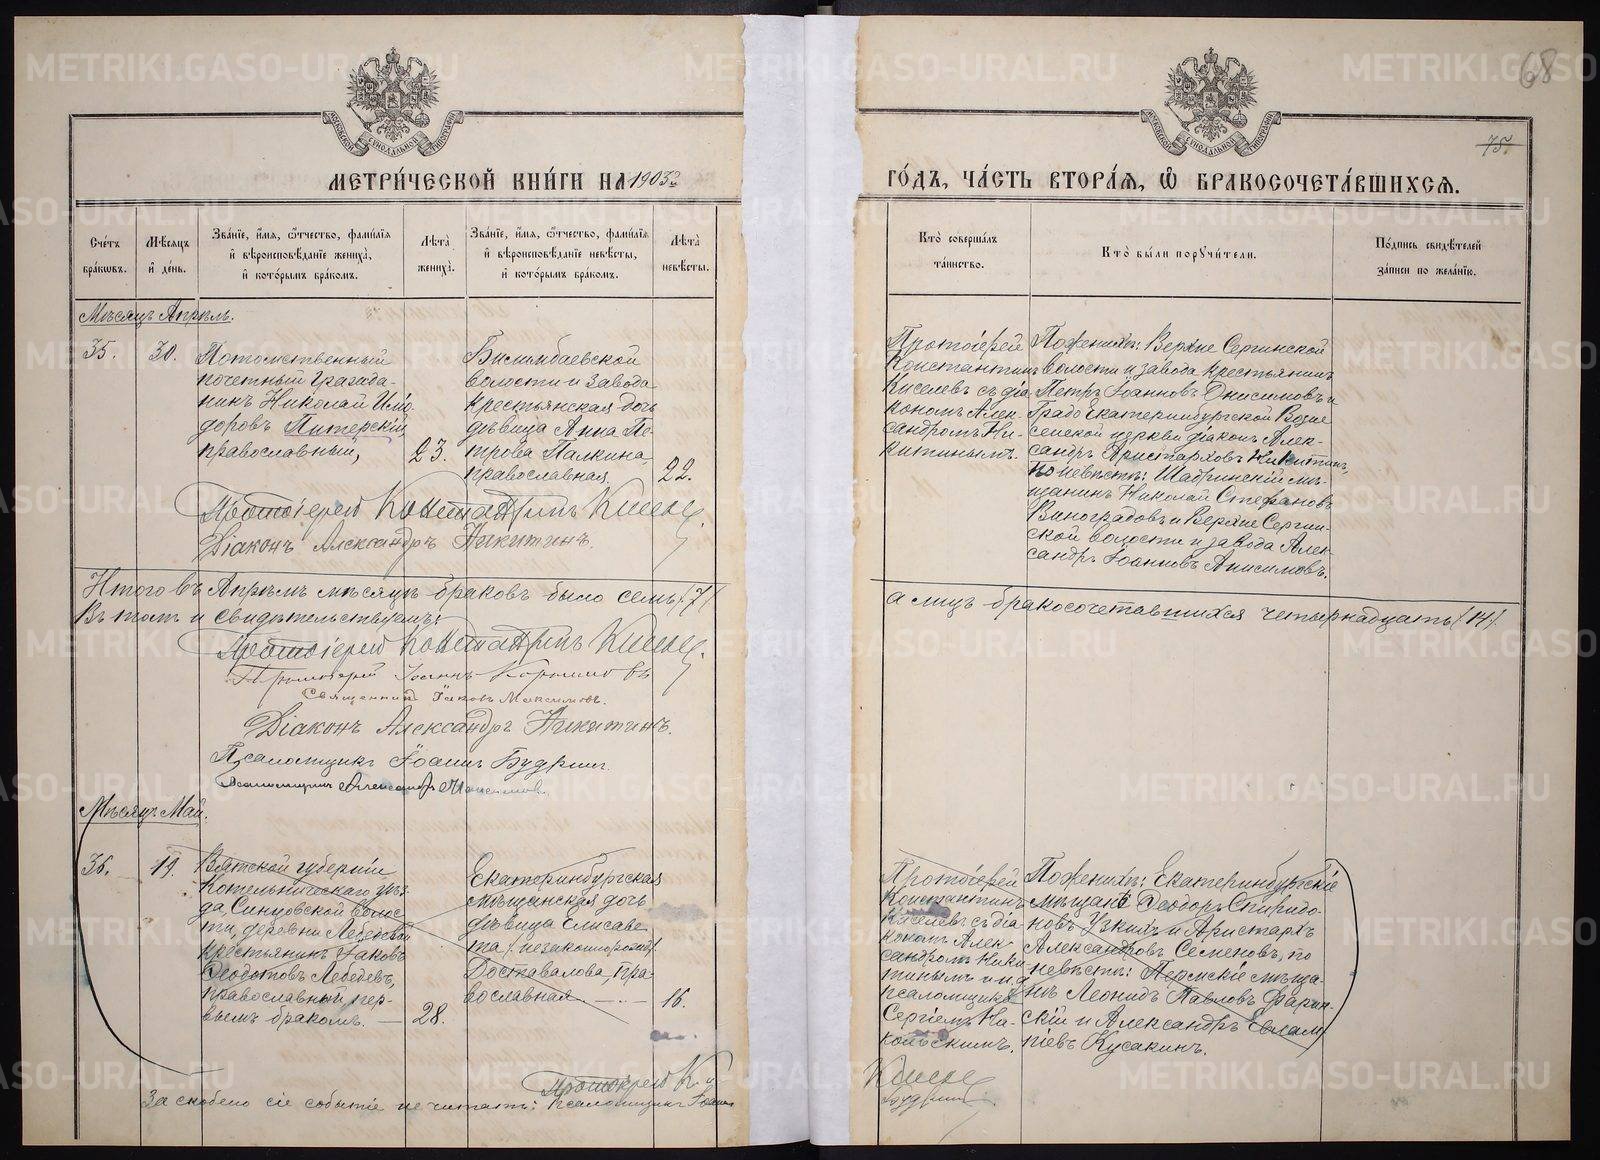 68
75.
МЕТРИ́ЧЕСКОЙ КНИ́ГИ НА 1903й
ГО́ДЪ, ЧА́СТЬ ВТОРА́Я, Ѡ҆ БРАКОСОЧЕТА́ВШИХСЯ.
Сче́тъ бра́кѡвъ.
Мѣ́сяцъ и҆ де́нь.
Зва́нїе, и҆́мя, ѻ҆́тчество, фами́лїя и҆ вѣроисповѣ́данїе жениха̀, и҆ кото́рымъ бра́комъ.
Лѣ́та̀ жениха̀.
Зва́нїе, и҆́мя, ѻ҆́тчество, фами́лїя и҆ вѣроисповѣ́данїе невѣ́сты, и҆ кото́рымъ бра́комъ.
Лѣ́та̀ невѣ́сты.
Кто̀ соверша́лъ та́инство.
Кто̀ бы́ли порꙋчи́тели.
По́дпись свидѣ́телей за́писи по жела́нїю.
Мѣсяцъ Апрѣль.
35.
30.
Потомственный
почетный гражда-
нинъ Николай Исидо-
ровъ Питерскій,
православный,
23.
Билимбаевской
волости и завода
крестьянская дочь
дѣвица Анна Пе-
трова Палкина,
православная.
22.
Протоіерей
Константинъ
Киселевъ съ діа-
кономъ Алек-
сандромъ Ни-
китинымъ.
По женихѣ: Верхне Сергинской
волости и завода крестьянинъ
Петръ Іоанновъ Онисимовъ и
Градо Екатеринбургской Возне-
сенской церкви діаконъ Алек-
сандръ Аристарховъ Никитинъ,
по невѣстѣ: Шадринскій мѣ-
щанинъ Николай Стефановъ
Виноградовъ и Верхне Сергин-
ской волости и завода Алек-
сандръ Іоанновъ Анисимовъ.
Протоіерей Константинъ Киселев
Діаконъ Александръ Никитинъ.
Итого въ Апрѣлѣ мѣсяцѣ браковъ было семь (7)
а лицъ бракосочетавшихся четырнадцать (14).
Въ томъ и свидѣтельствуемъ:
Протоіерей Константинъ Киселев.
Протоіерей Іоаннъ
Священникъ Іаковъ Максимовъ.
Діаконъ Александръ Никитинъ.
Псаломщикъ Іоаннъ Будринъ.
Псаломщикъ Александръ
Мѣсяцъ Май.
36.
19.
Вятской губерніи
Котельническаго уѣз-
да, Синцовской волос-
ти, деревни Лебедевой
крестьянинъ Іаковъ
Ѳеодотовъ Лебедевъ,
православный, пер-
вымъ бракомъ. —
28.
Екатеринбургская
мѣщанская дочь
дѣвица Елисаве-
та (незаконнорожд.)
Доставалова, пра-
вославная. —
16.
Протоіерей
Константинъ
Киселевъ съ діа-
кономъ Алек-
сандромъ Ники-
тинымъ и и.д.
псаломщика
Сергіемъ Ни-
кольскимъ.
По женихѣ: Екатеринбургскіе
мѣщане Ѳеодоръ Спиридо-
новъ Узкихъ и Аристархъ
Александровъ Семеновъ, по
невѣстѣ: Пермскіе мѣща-
нъ Леонидъ Павловъ Фарин-
скій и Александръ Евлам-
піевъ Кусакинъ.
Протоіерей К. Киселев
За скобено сіе событіе не читать: Псаломщикъ Іоаннъ Будринъ.